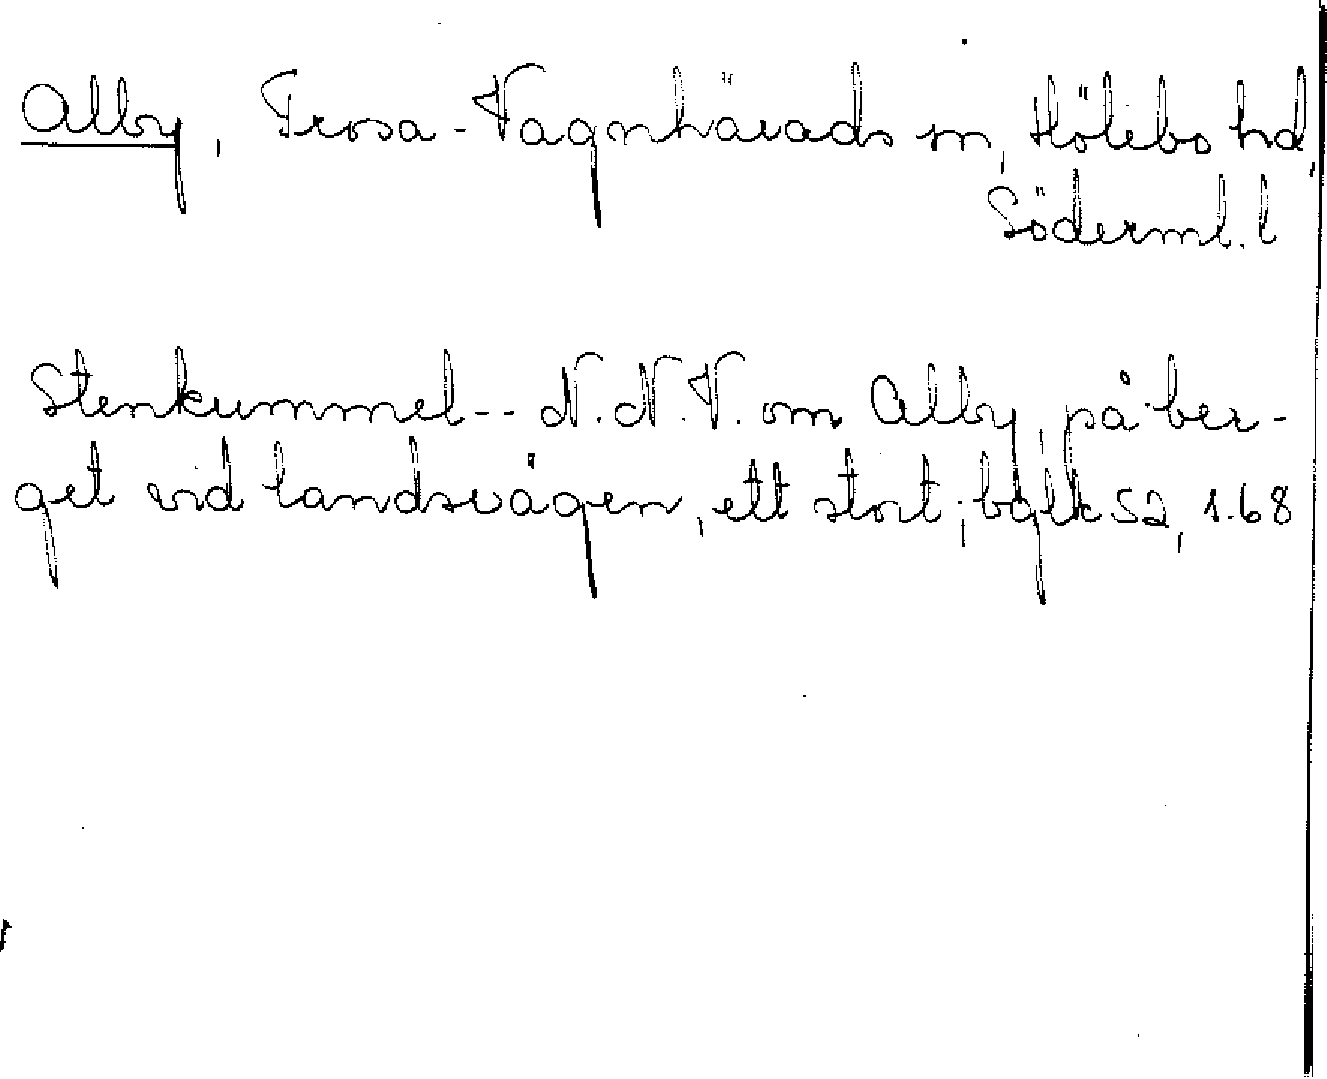 Alby, Trosa-Vagnhärads sn, Hölebo hd,
Söderml. l
Stenkummel-- N.N.V. om Alby, på ber-
get vid landsvägen, ett stort; bglk S2, 1.68